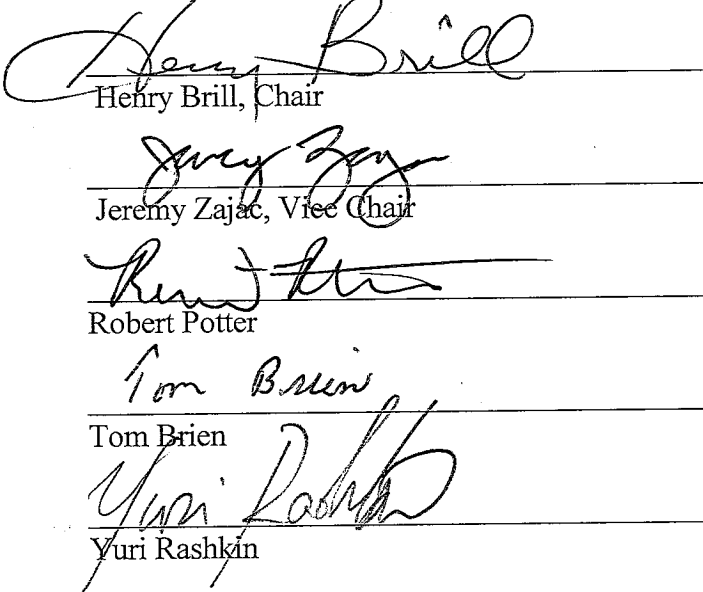 Henry Brill
Henry Brill, Chair
Jeremy Zajac
Jeremy Zajac, Vice Chair
Robert Potter
Tom Brien
Tom Brien
Yuri Rashkin
Yuri Rashkin